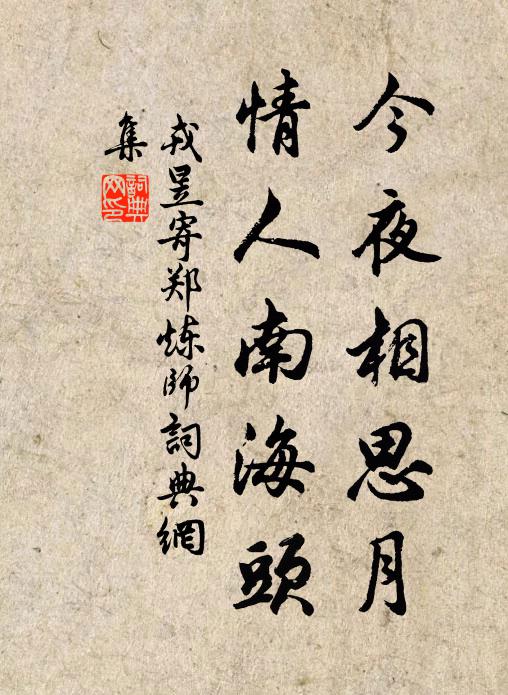 今夜相思月
情人南海頭
戎昱寄郑炼师詞典網
集
詞典
网印